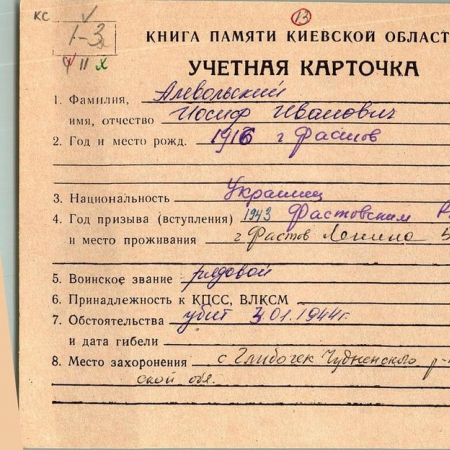 КС
13
1-3
КНИГА ПАМЯТИ КИЕВСКОЙ ОБЛАСТ
УЧЕТНАЯ КАРТОЧКА
1. Фамилия,
имя, отчество Иосиф Иванович
2. Год и место рожд. 1916 г Фастов
3. Национальность Украинец
4. Год призыва (вступления) 1943 Фастовским Р
и место проживания г Фастов Ленина 5
5. Воинское звание рядовой
6. Принадлежность к КПСС, ВЛКСМ
7. Обстоятельства убит 3.01.1944г.
и дата гибели
8. Место захоронения с Глибочек Чудненского р-
ской обл.